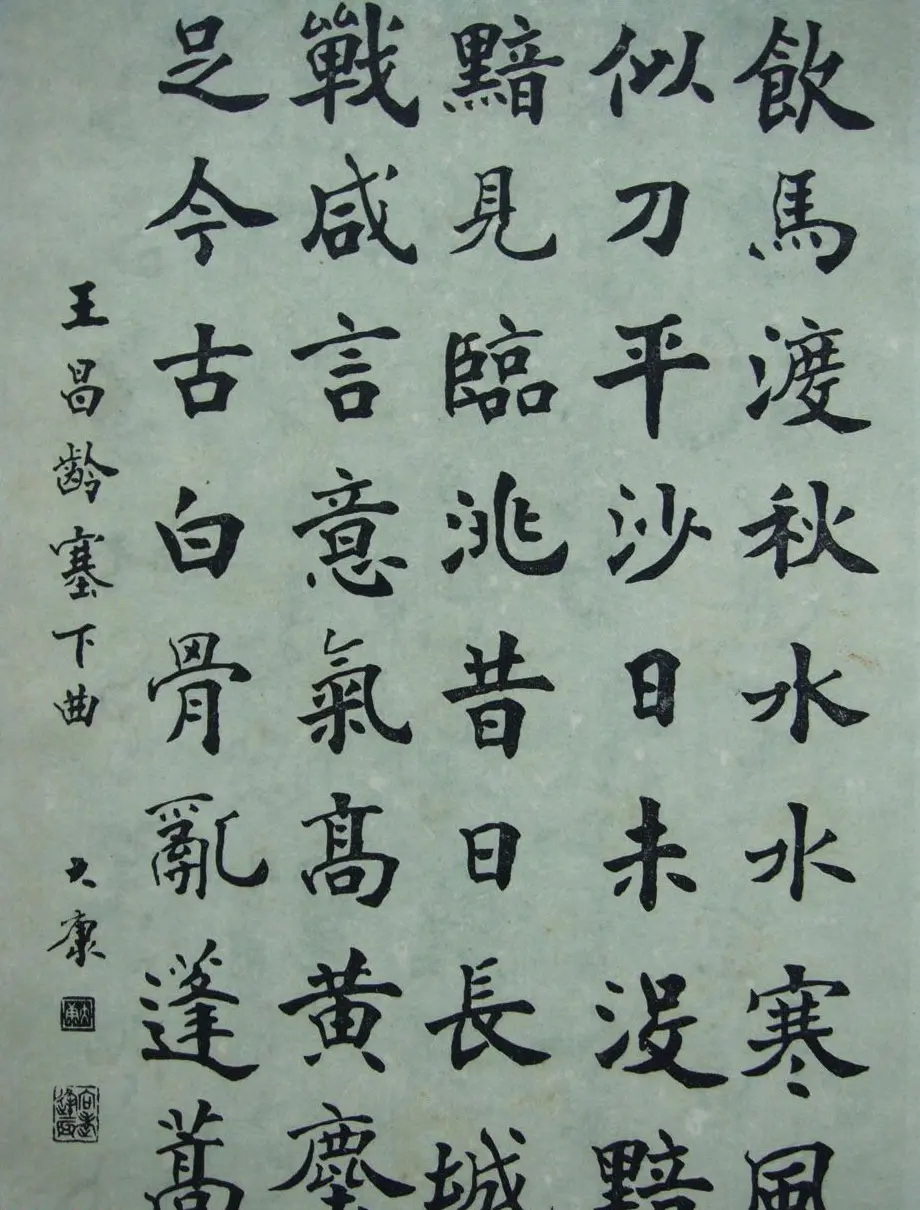 飲馬渡秋水水寒風
似刀平沙日未没黯
黯見臨洮昔日長城
戰咸言意氣高黃塵
足今古白骨亂蓬蒿
王昌齡塞下曲
大康